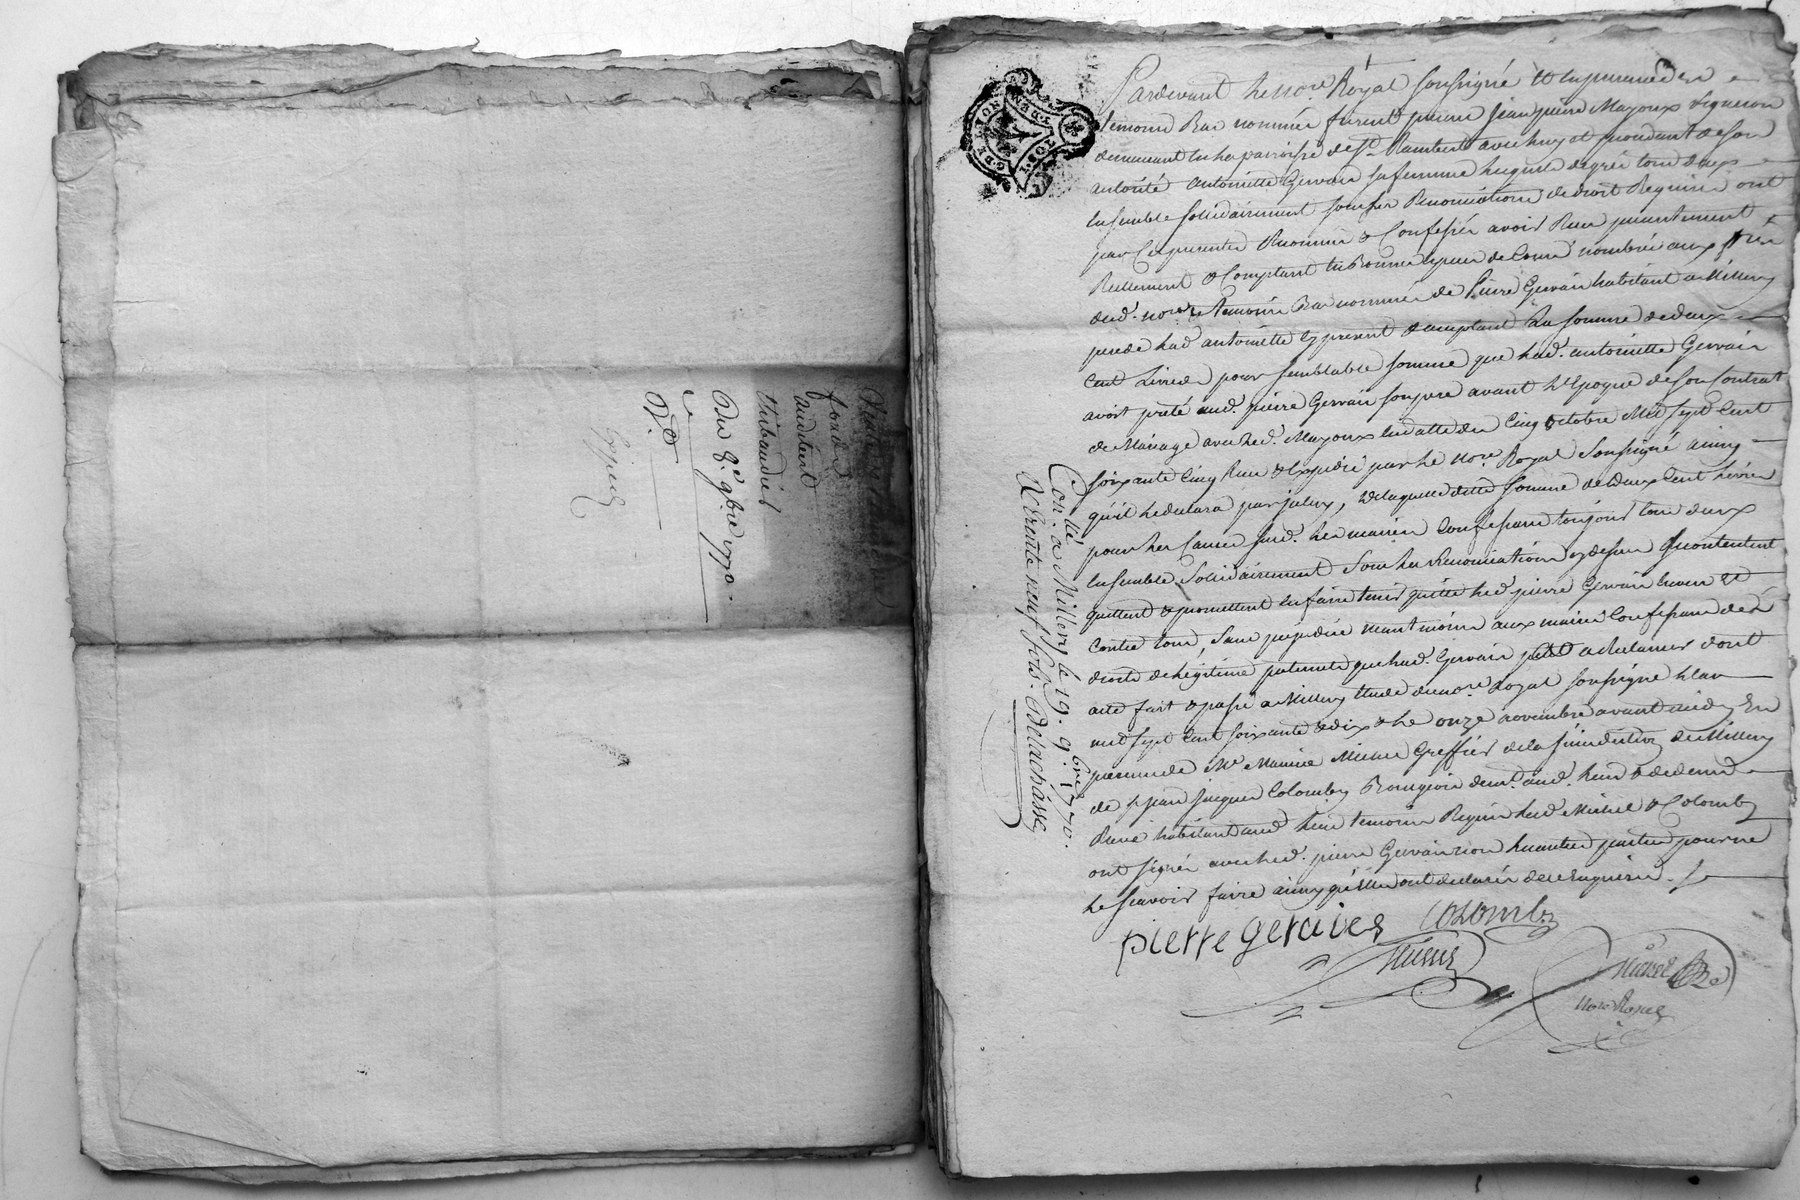 Du 8e 9bre 1770
Pardevant Le nore. Royal soussigné et en presence des
temoins Bas nommés furent presens Jean pierre Mayoux vigneron
demeurant en la parroisse de St. Rambert avec luy et procedant de son
autorité antoinette Gervais sa femme lesquels de gré tous deux
Ensemble sollidairement sous les Renonciations de droit Requises ont
par Ces presentes Reconnu & Confessé avoir Reçu presentement
Réellement & Comptant En Bonnes especes de Cours nombrées aux yeux
dud. nore. & temoins Bas nommés de Pierre Gervais habitant a Millery
pere de lad antoinette Cy present & acceptant La somme de deux
Cent Livres pour semblable somme que lad. antoinette Gervais
avoit preté aud. pierre Gervais son pere avant L'Epoque de son Contrat
de Mariage avec led. Mayoux En datte du Cinq octobre Mil sept Cent
soixante Cinq Reçu & Expedié par le nore. Royal soussigné ainsy
qu'il se declara par jceluy, De laquelle ditte somme de deux Cent Livres
pour les Causes susd. les mariés Confessans toujours tous deux
Ensemble sollidairement sous les Renonciations cy dessus se contentent
quittent & promettent En faire tenir quitte led pierre Gervais Envers Et
Contre tous, sans prejudice neantmoins aux mariés Confessans des
droits de Legitime paternelle que lad. Gervais peut a Reclamer dont
acte fait & passé a Millery Etude du nore. Royal soussigné L'an
mil sept Cent soixante & dix & Le onze novembre avant midy En
presence de Me Maurice Greffier de la jurisdiction de Millery
de sr jean jacques Colomby Bourgeois demt. aud. lieu
habitant aud lieu temoins Requis Led. & Colomby
ont signés avec led. pierre Gervais non les autres parties pour ne
le scavoir faire ainsy qu'elles ont declarés de ce Enquises.
pierre gervais Colomby
nore Royal
Con.lé a Millery le 19. 9bre. 1770.
R trente neuf sols. Delachassé